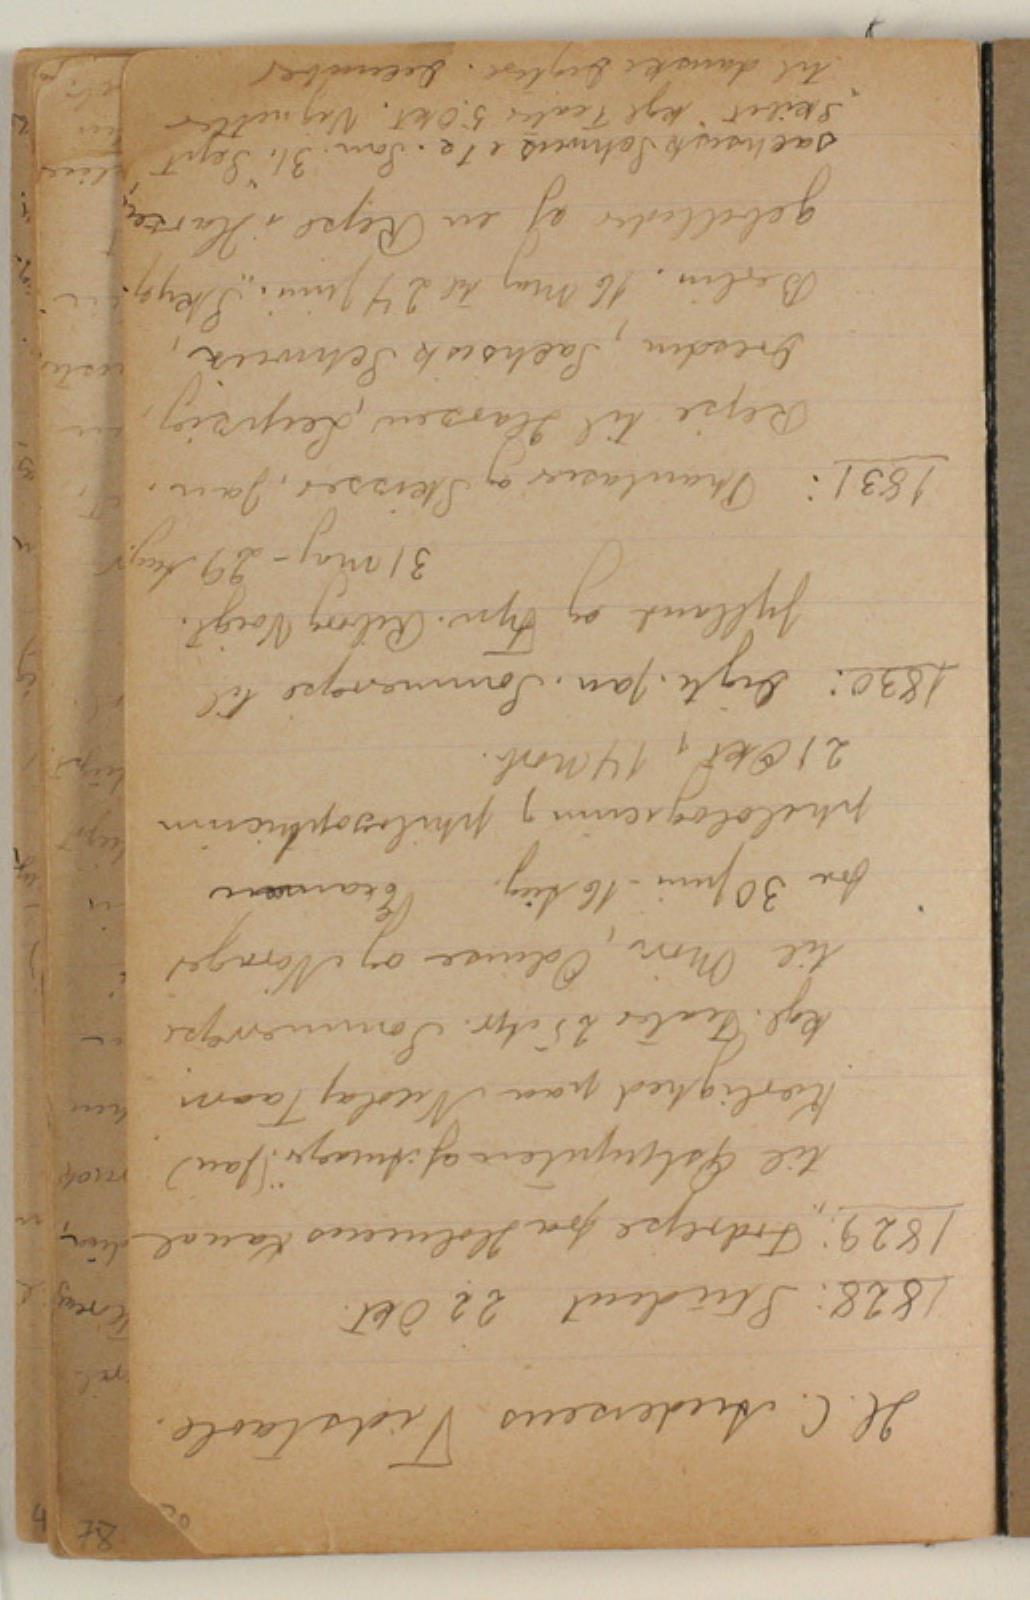 H. C. Andersens Tidstavle.
1828: Student 22 Okt.
1829: „Fodrejse fra Holmens Kanal
til Østpynten af Amager" (Jan)
Kærlighed paa Nicolaj Taarn
kgl. Teater 25 Apr. Sommerrejse
til Møn, Odense og Norager
fra 30 juni - 16 Aug. Examen
philologicum, philosophicum
21 Okt, 14 Nov.
1830: Digte. Jan. Sommerrejse til
Jylland og Fyn. Riborg Voigt.
31 Maj - 29 Aug.
1831: Phantasier og Skisser, Jan.
Rejse til Harzen, Leipzig,
Dresden, Sachsisk Schweiz,
Berlin. 16 Maj til 24 juni. „Skyg-
gebilleder af en Rejse i Harzen,
sachsisk Schweiz etc. Jan. 31. Sept
Skibet" kgl Teater 5 Okt. Vignetter
til danske Digtere. December